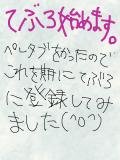 てぶろ始めます。
ペンタブをかったので
これを期にてぶろ
に登録してみ
ました(^o^)